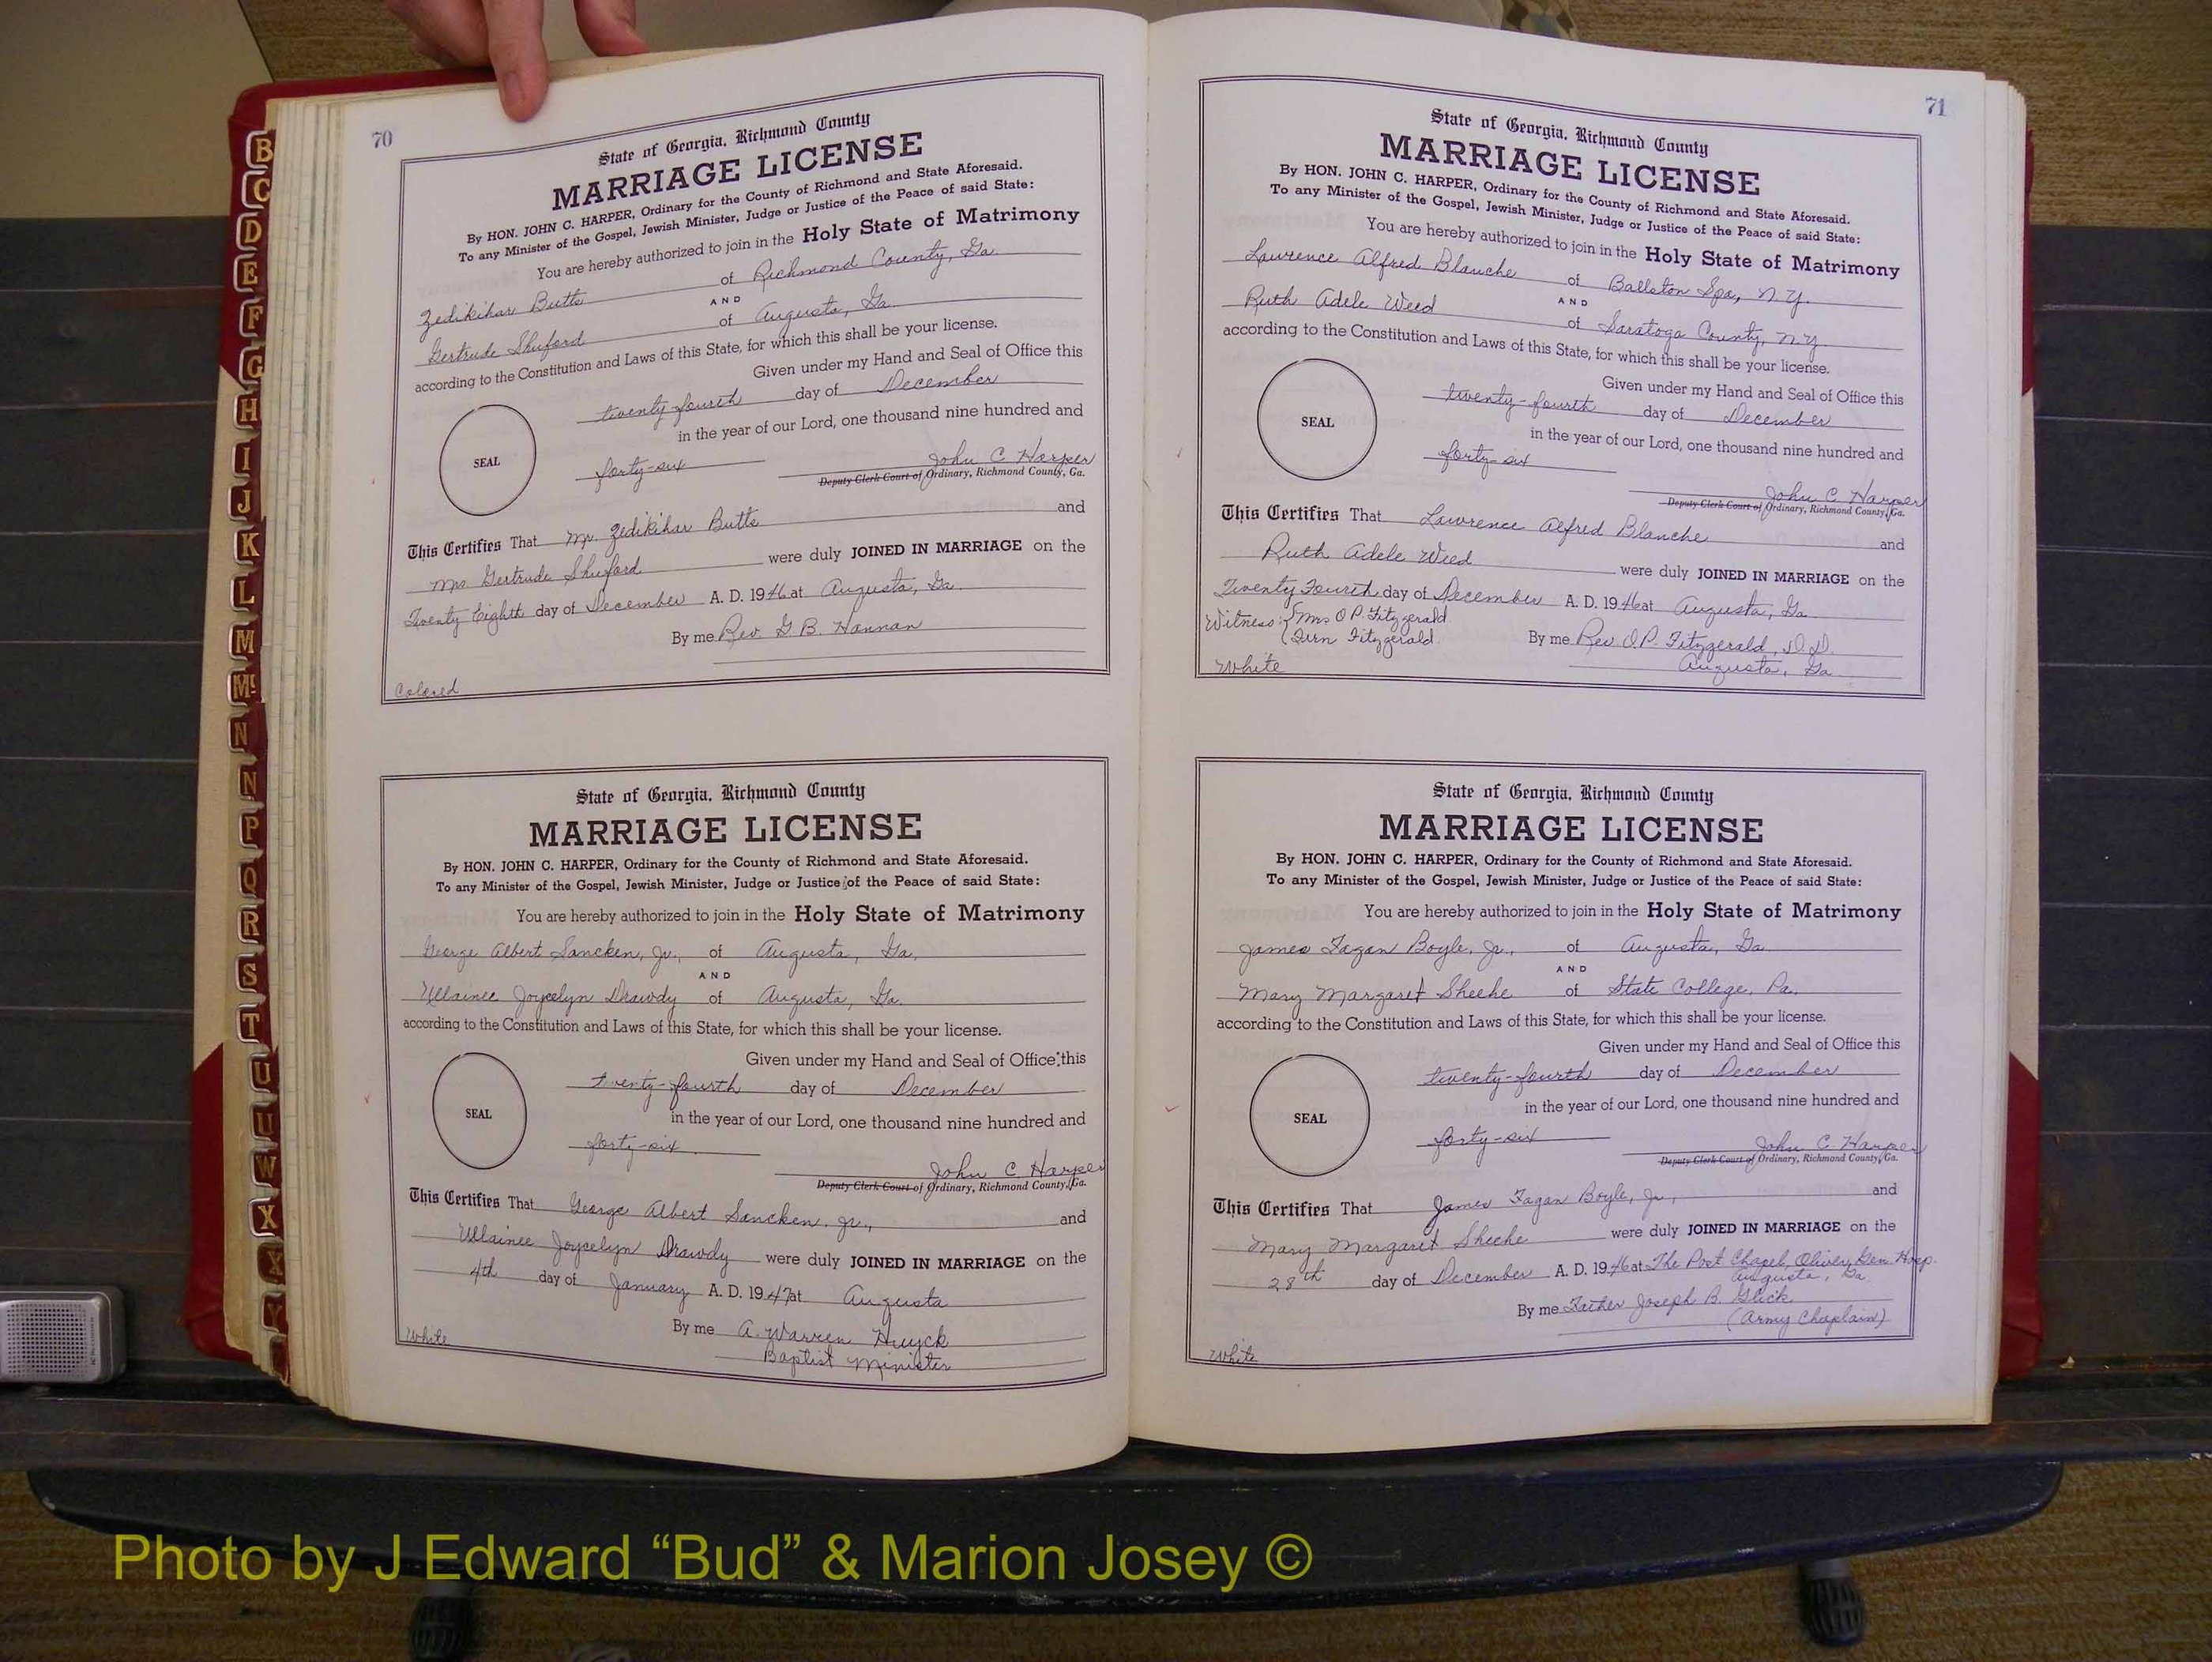 B
C
D
E
F
G
H
I
J
K
L
M
Mc
N
N
P
Q
R
S
T
U
U
W
X
X
Y
70
State of Georgia, Richmond County
MARRIAGE LICENSE
By HON. JOHN C. HARPER, Ordinary for the County of Richmond and State Aforesaid.
To any Minister of the Gospel, Jewish Minister, Judge or Justice of the Peace of said State:
You are hereby authorized to join in the Holy State of Matrimony
Zedikihar Butts of Richmond County, Ga.
AND
Gertrude Shuford of Augusta, Ga.
according to the Constitution and Laws of this State, for which this shall be your license.
Given under my Hand and Seal of Office this
twenty-fourth day of December
in the year of our Lord, one thousand nine hundred and
SEAL
forty-six John C Harper
Deputy Clerk Court of Ordinary, Richmond County, Ga.
This Certifies That Mr. Zedikihar Butts and
Mrs. Gertrude Shuford were duly JOINED IN MARRIAGE on the
Twenty Eighth day of December A. D. 1946 at Augusta, Ga.
By me Rev. G B. Hannan
Colored
State of Georgia, Richmond County
MARRIAGE LICENSE
By HON. JOHN C. HARPER, Ordinary for the County of Richmond and State Aforesaid.
To any Minister of the Gospel, Jewish Minister, Judge or Justice of the Peace of said State:
You are hereby authorized to join in the Holy State of Matrimony
George Albert Sancken, Jr., of Augusta, Ga.
AND
Ullainee Joycelyn Drawdy of Augusta, Ga.
according to the Constitution and Laws of this State, for which this shall be your license.
Given under my Hand and Seal of Office this
twenty-fourth day of December
in the year of our Lord, one thousand nine hundred and
SEAL
forty-six. John C Harper
Deputy Clerk Court of Ordinary, Richmond County, Ga.
This Certifies That George Albert Sancken, Jr., and
Ullainee Joycelyn Drawdy were duly JOINED IN MARRIAGE on the
4th day of January A. D. 1947 at Augusta
By me A. Warren Huyck
Baptist Minister
White
71
State of Georgia, Richmond County
MARRIAGE LICENSE
By HON. JOHN C. HARPER, Ordinary for the County of Richmond and State Aforesaid.
To any Minister of the Gospel, Jewish Minister, Judge or Justice of the Peace of said State:
You are hereby authorized to join in the Holy State of Matrimony
Lawrence Alfred Blanche of Ballston Spa, N.Y.
AND
Ruth Adele Weed of Saratoga County, N.Y.
according to the Constitution and Laws of this State, for which this shall be your license.
Given under my Hand and Seal of Office this
twenty-fourth day of December
in the year of our Lord, one thousand nine hundred and
SEAL
forty-six John C. Harper
Deputy Clerk Court of Ordinary, Richmond County, Ga.
This Certifies That Lawrence Alfred Blanche and
Ruth Adele Weed were duly JOINED IN MARRIAGE on the
Twenty Fourth day of December A. D. 1946 at Augusta, Ga.
Witness: Mrs O.P. Fitzgerald
Fern Fitzgerald By me Rev. O.P. Fitzgerald, D.D.
White Augusta, Ga.
State of Georgia, Richmond County
MARRIAGE LICENSE
By HON. JOHN C. HARPER, Ordinary for the County of Richmond and State Aforesaid.
To any Minister of the Gospel, Jewish Minister, Judge or Justice of the Peace of said State:
You are hereby authorized to join in the Holy State of Matrimony
James Fagan Boyle, Jr., of Augusta, Ga.
AND
Mary Margaret Sheehe of State College, Pa.
according to the Constitution and Laws of this State, for which this shall be your license.
Given under my Hand and Seal of Office this
twenty-fourth day of December
in the year of our Lord, one thousand nine hundred and
SEAL
forty-six John C. Harper
Deputy Clerk Court of Ordinary, Richmond County, Ga.
This Certifies That James Fagan Boyle, Jr., and
Mary Margaret Sheehe were duly JOINED IN MARRIAGE on the
28th day of December A. D. 1946 at The Post Chapel, Oliver Gen. Hosp.
Augusta, Ga.
By me Father Joseph B. Glick
(Army Chaplain)
White
Photo by J Edward “Bud” & Marion Josey ©